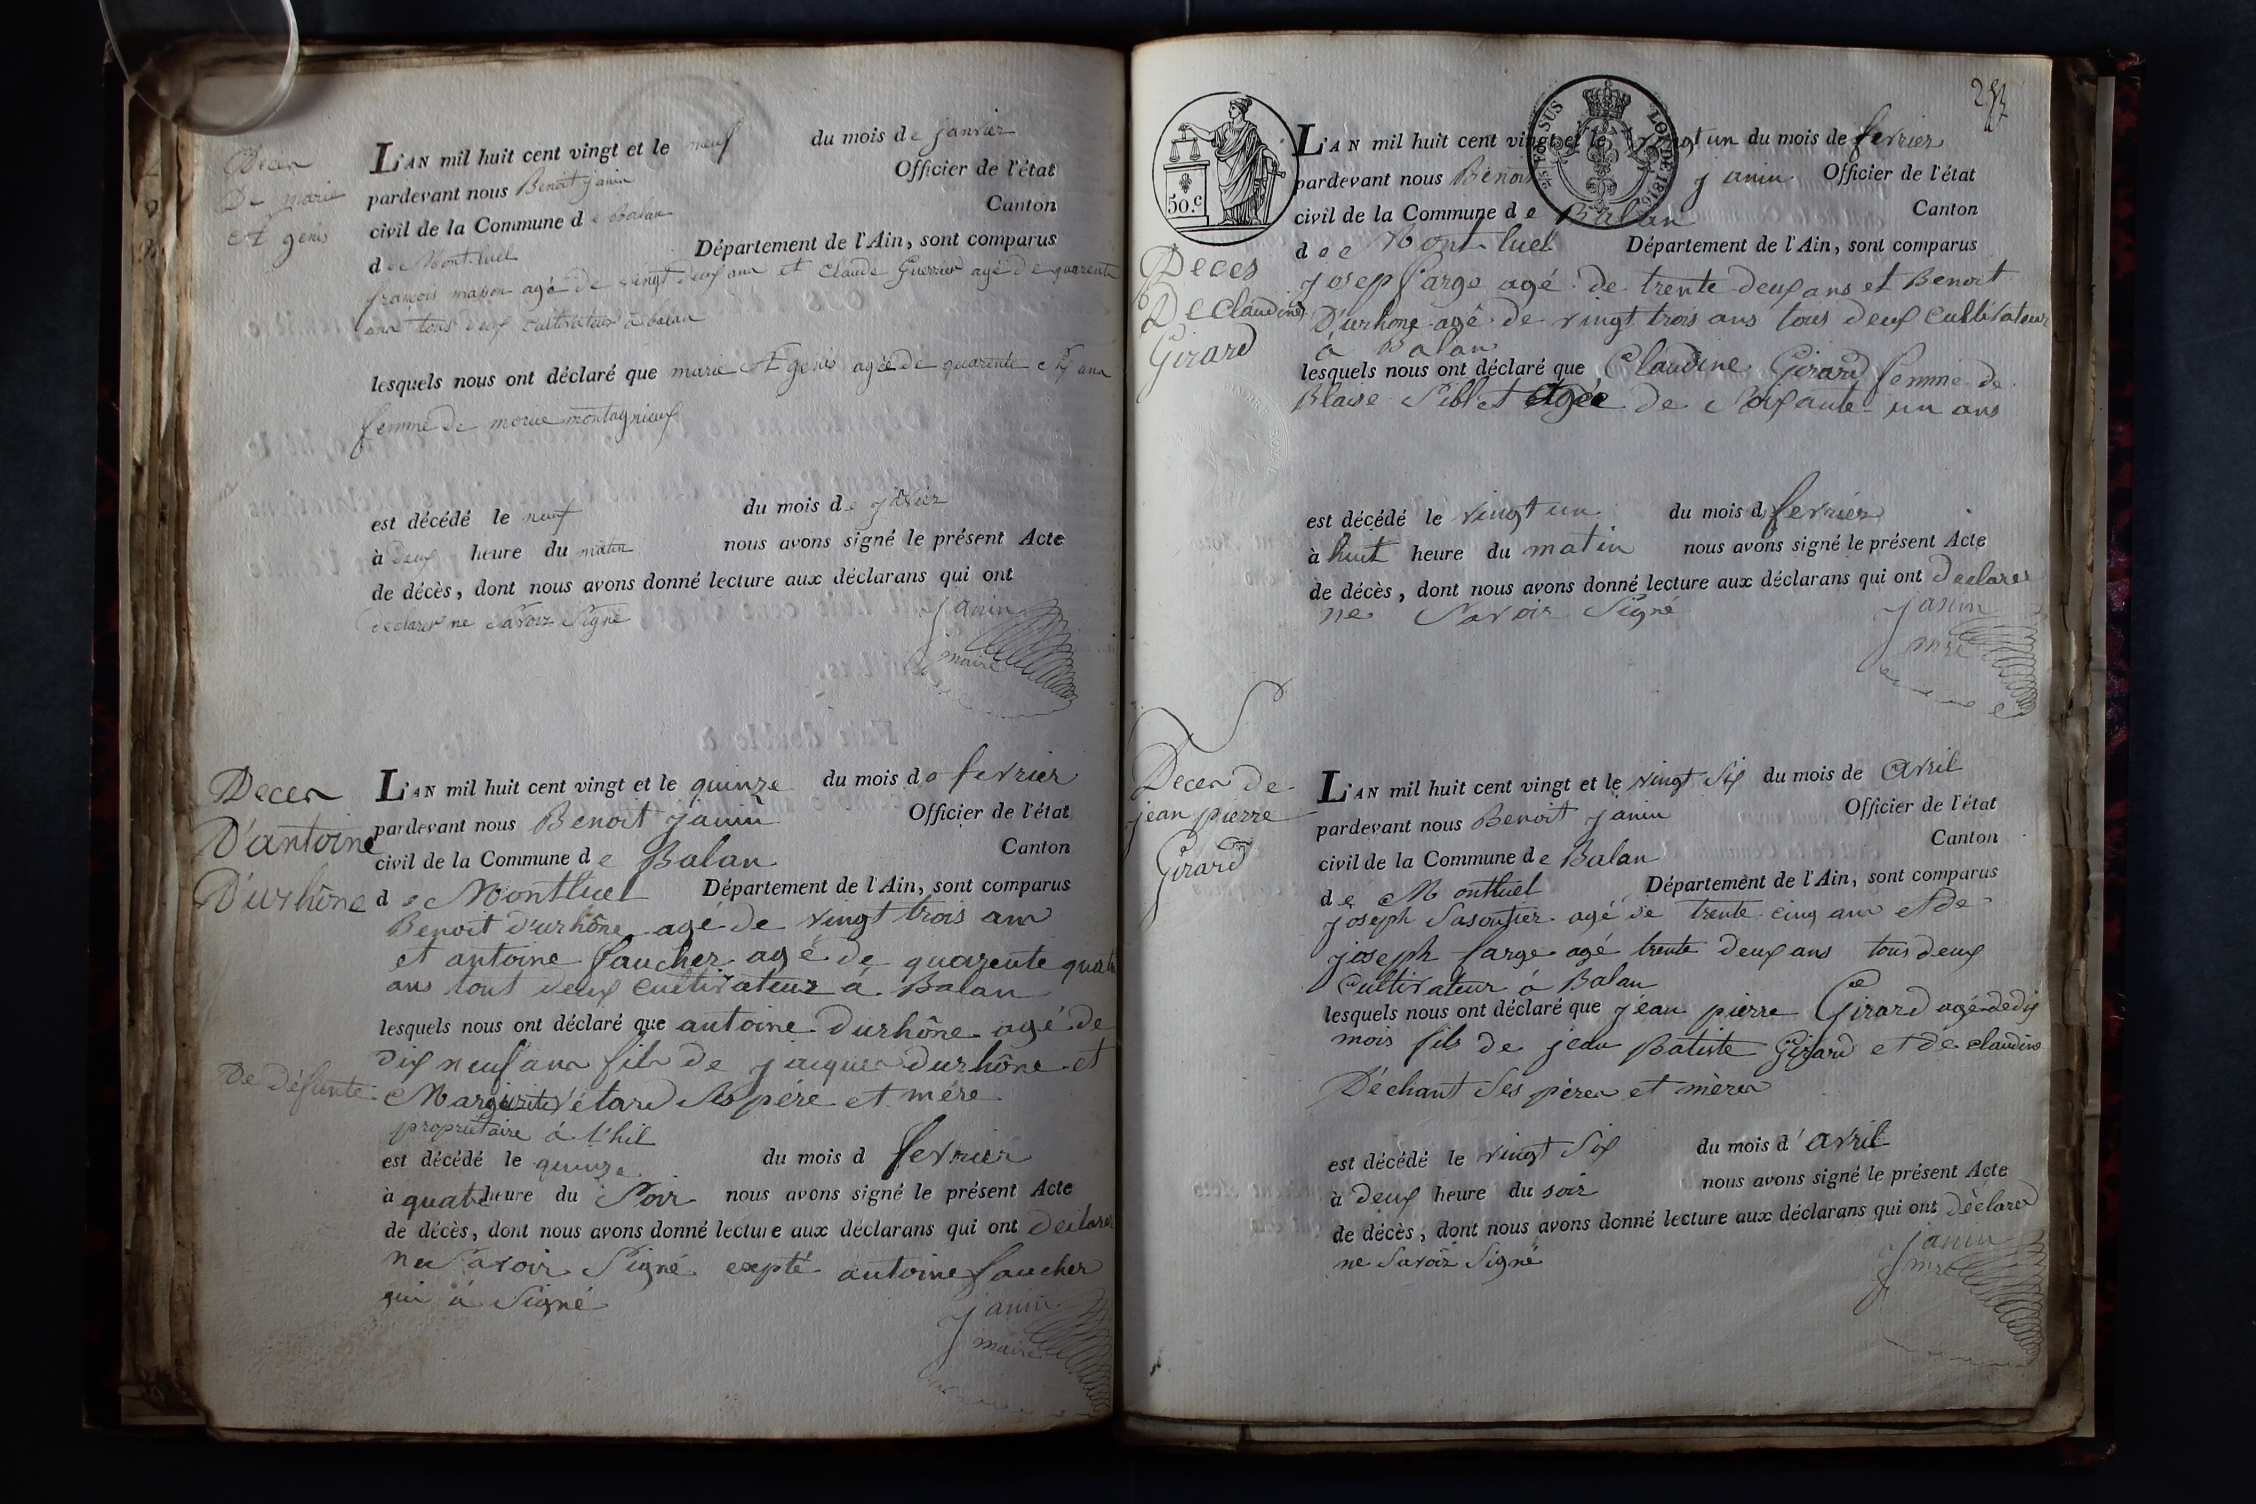 Deces
De marie
St genis
L'AN mil huit cent vingt et le neuf du mois de janvier
pardevant nous Benoit janin Officier de l'état
civil de la Commune de Balan Canton
de Montluel Département de l'Ain, sont comparus
françois agé de vingt deux ans et Claude Guerrier agé de quarente
ans tous deux cultivateur à balan
lesquels nous ont déclaré que marie St genis agée de quarente ans
femme de montagnieux
est décédé le neuf du mois de
à deux heure du matin nous avons signé le présent Acte
de décès, dont nous avons donné lecture aux déclarans qui ont
declarer ne Savoir Signé
janin
maire
Deces
D'antoine
D'urhône
L'AN mil huit cent vingt et le quinze du mois de fevrier
pardevant nous Benoit janin Officier de l'état
civil de la Commune de Balan Canton
de Montluel Département de l'Ain, sont comparus
Benoit D'urhône agé de vingt trois ans
et antoine faucher agé de quarente quatre
ans tout deux cultivateur à Balan
lesquels nous ont déclaré que antoine Durhône agé de
dix neuf ans fils de jacques durhône et
De défunte Margurite vétard Ses père et mére
propriétaire à
est décédé le quinze du mois d fevrier
à quatre heure du Soir nous avons signé le présent Acte
de décès, dont nous avons donné lecture aux déclarans qui ont declarer
ne Savoir Signé expté antoine faucher
qui à Signé
janin
maire
50.c
SUS
LOI DE 1816
Deces
De Claudine
Girard
L'AN mil huit cent vingt et le vingt un du mois de fevrier
pardevant nous Benoit janin Officier de l'état
civil de la Commune de Balan Canton
de Montluel Département de l'Ain, sont comparus
josep farge agé de trente deux ans et Benoit
D'urhône agé de vingt trois ans tous deux cultivateur
à Balan
lesquels nous ont déclaré que Claudine Girard femme de
Blaise agée de Soixante un ans
est décédé le vingt un du mois d fevrier
à huit heure du matin nous avons signé le présent Acte
de décès, dont nous avons donné lecture aux déclarans qui ont declarer
ne Savoir Signé
janin
mre
Deces de
jean pierre
Girard
L'AN mil huit cent vingt et le vingt Six du mois de avril
pardevant nous Benoit janin Officier de l'état
civil de la Commune de Balan Canton
de Montluel Département de l'Ain, sont comparus
joseph agé de trente cinq ans et de
joseph farge agé trente deux ans tous deux
Cultivateur à Balan
lesquels nous ont déclaré que jean pierre Girard agé de dix
mois fils de jean Batiste Girard et de claudine
Déchant Ses pères et mères
est décédé le vingt Six du mois d'avril
à deux heure du soir nous avons signé le présent Acte
de décès, dont nous avons donné lecture aux déclarans qui ont déclarer
ne Savoir Signé
janin
mre